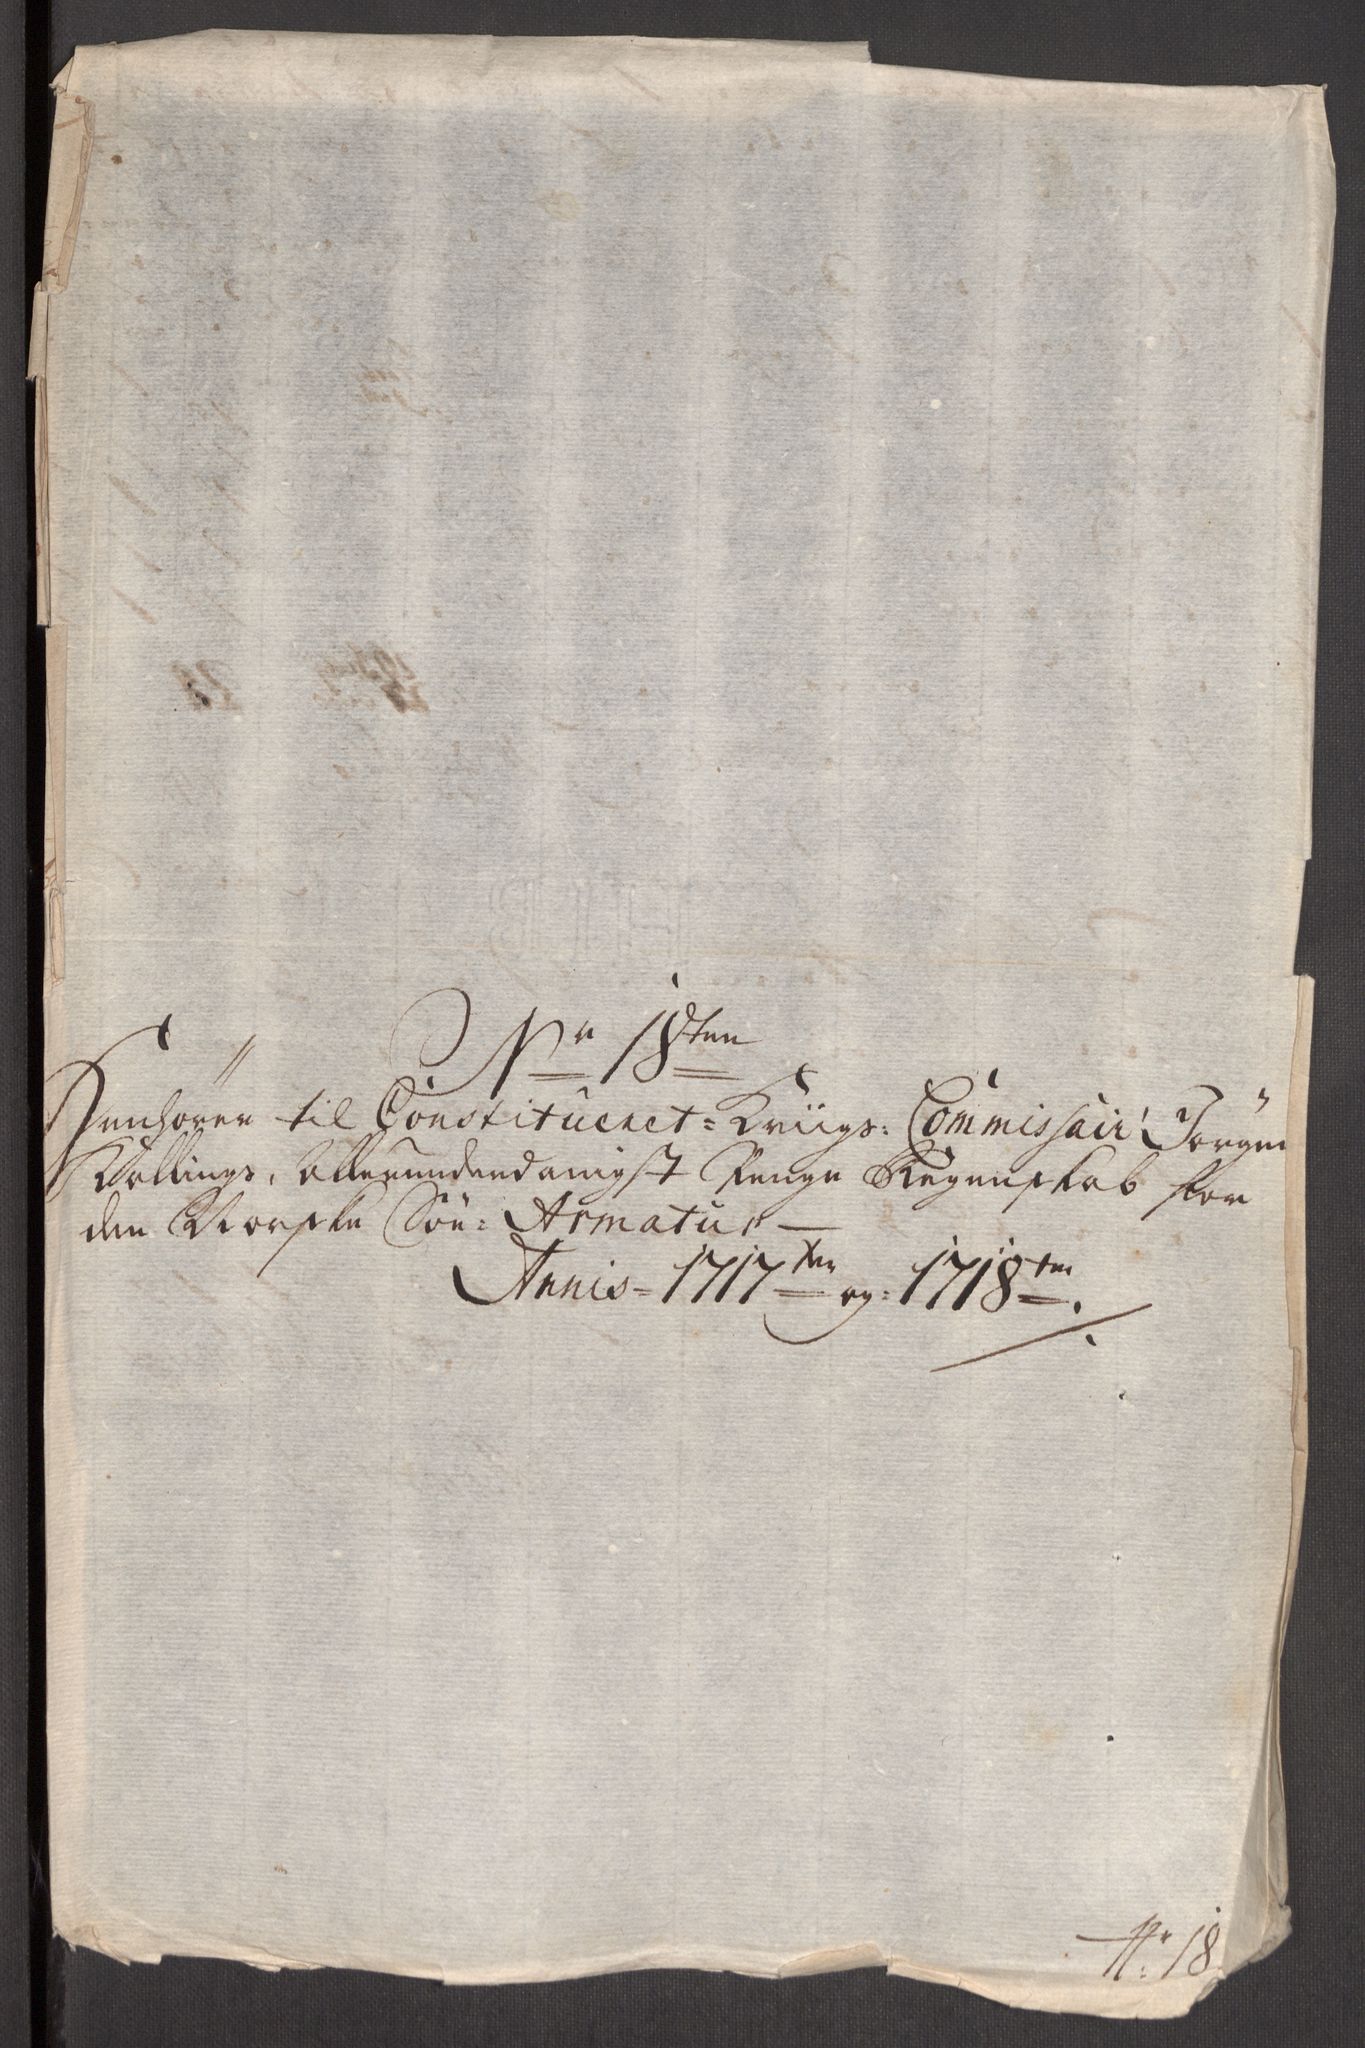 Nr 18den
Henhörer til Constitueret= Kriigs: Commissair Jörgen
Kollings, Allerunderdanigst Penge Regenskab for
den Norske Söe= Armatur
Annis= 1717ten og= 1718ten.
Nr: 18